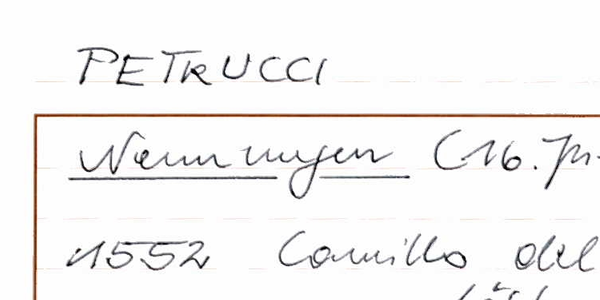 PETRUCCI
Nennungen (16. Jh.
1552 Camillo del